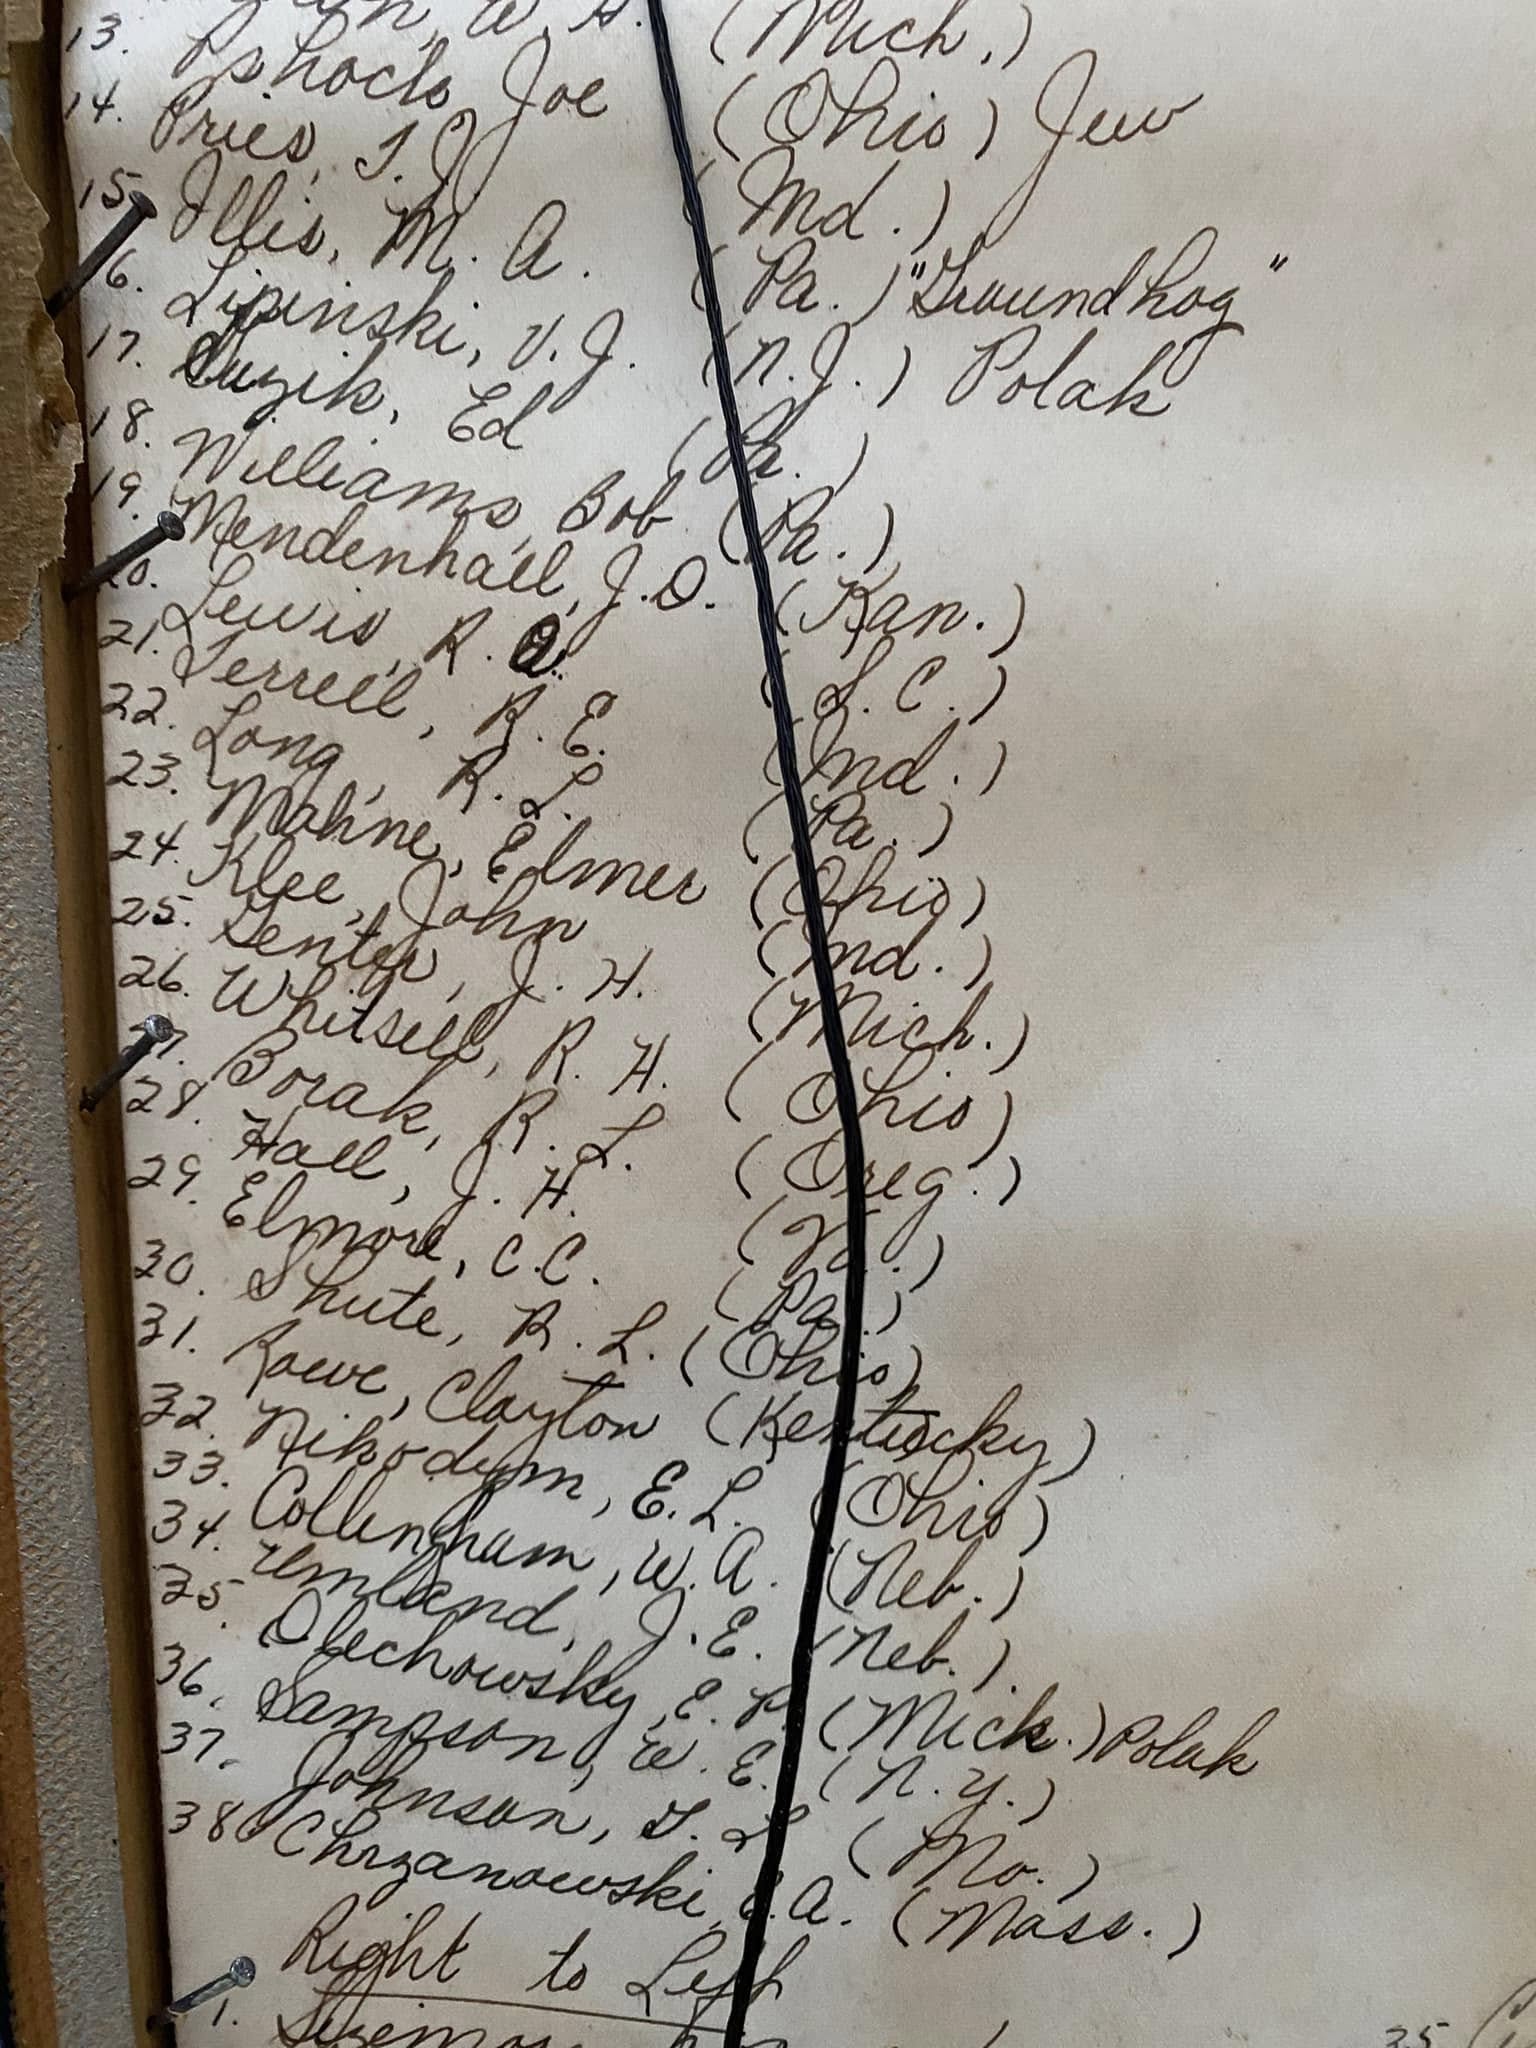 W. H. (Mich.)
13. Pshock, Joe (Ohio) Jew
14. Pries, T. J. (Md.)
15. Illis, M. A. (Pa.) "Groundhog"
16. Lipinski, V. J. (N.J.) Polak
17. Guzik, Ed (Pa.)
18. Williams, Bob (Pa.)
19. Mendenhall, J. O. (Kan.)
20. Lewis, R. A. (S. C.)
21. Terrell, R. E. (Md.)
22. Long, R. L. (Pa.)
23. Mahne, Elmer (Ohio)
24. Klee, John (Md.)
25. Genter, J. H. (Mich.)
26. Whitsell, R. H. (Ohio)
27. Borak, R. L. (Oreg.)
28. Hall, J. H. (Va.)
29. Elmore, C. C. (Pa.)
30. Shute, R. L. (Ohio)
31. Rowe, Clayton (Kentucky)
32. Nikodym, E. L. (Ohio)
33. Collingham, W. A. (Neb.)
34. Umland, J. E. (Neb.)
35. Olechowsky, E. P. (Mich.) Polak
36. Sampson, W. E. (N. Y.)
37. Johnson, G. L. (Mo.)
38 Chrzanowski, E. A. (Mass.)
Right to Left
1. Sizemore
35